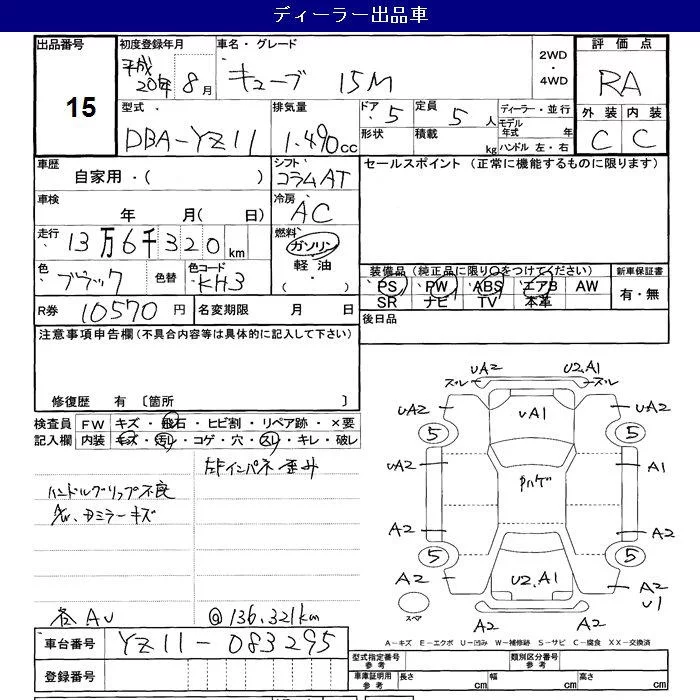 ディーラー出品車
出品番号 15
初度登録年月 平成 20年 8月
車名・グレード キューブ 15M
2WD ・ 4WD
評価点 RA
外装 内装
C C
型式 DBA-YZ11
排気量 1.490cc
ドア 5 形状
定員 5人 積載 kg
ディーラー・並行
モデル年式 年
ハンドル 左・右
車歴 自家用・( )
シフト コラムAT
セールスポイント (正常に機能するものに限ります)
車検 年 月( 日)
冷房 AC
走行 13万6千320km
燃料 ガソリン・軽油・( )
色 ブラック 色替
色コード KH3
装備品 (純正品に限り〇をつけてください)
PS PW ABS エアB AW
SR ナビ TV 本革
新車保証書 有・無
R券 10570円
名変期限 月 日
後日品
注意事項申告欄(不具合内容等は具体的に記入して下さい)
修復歴 有 〔箇所 〕
検査員記入欄
FW キズ・飛石・ヒビ割・リペア跡・×要
内装 キズ・汚レ・コゲ・穴・スレ・キレ・破レ
左Fインパネ歪み
ハンドルグリップ不良
キズ
各AU
@136,321km
UA2 U2.A1
スル スル
UA2 UA1 UA2
5 5
UA2 A1
Pハゲ
A2 A2
5 5
A2 U2.A1 A2
U1
A2 A2
スペア
A-キズ E-エクボ U-凹み W-補修跡 S-サビ C-腐食 XX-交換済
車台番号 YZ11-083295
登録番号
型式指定番号 参考
類別区分番号 参考
車庫証明用 参考 長さ cm 幅 cm 高さ cm